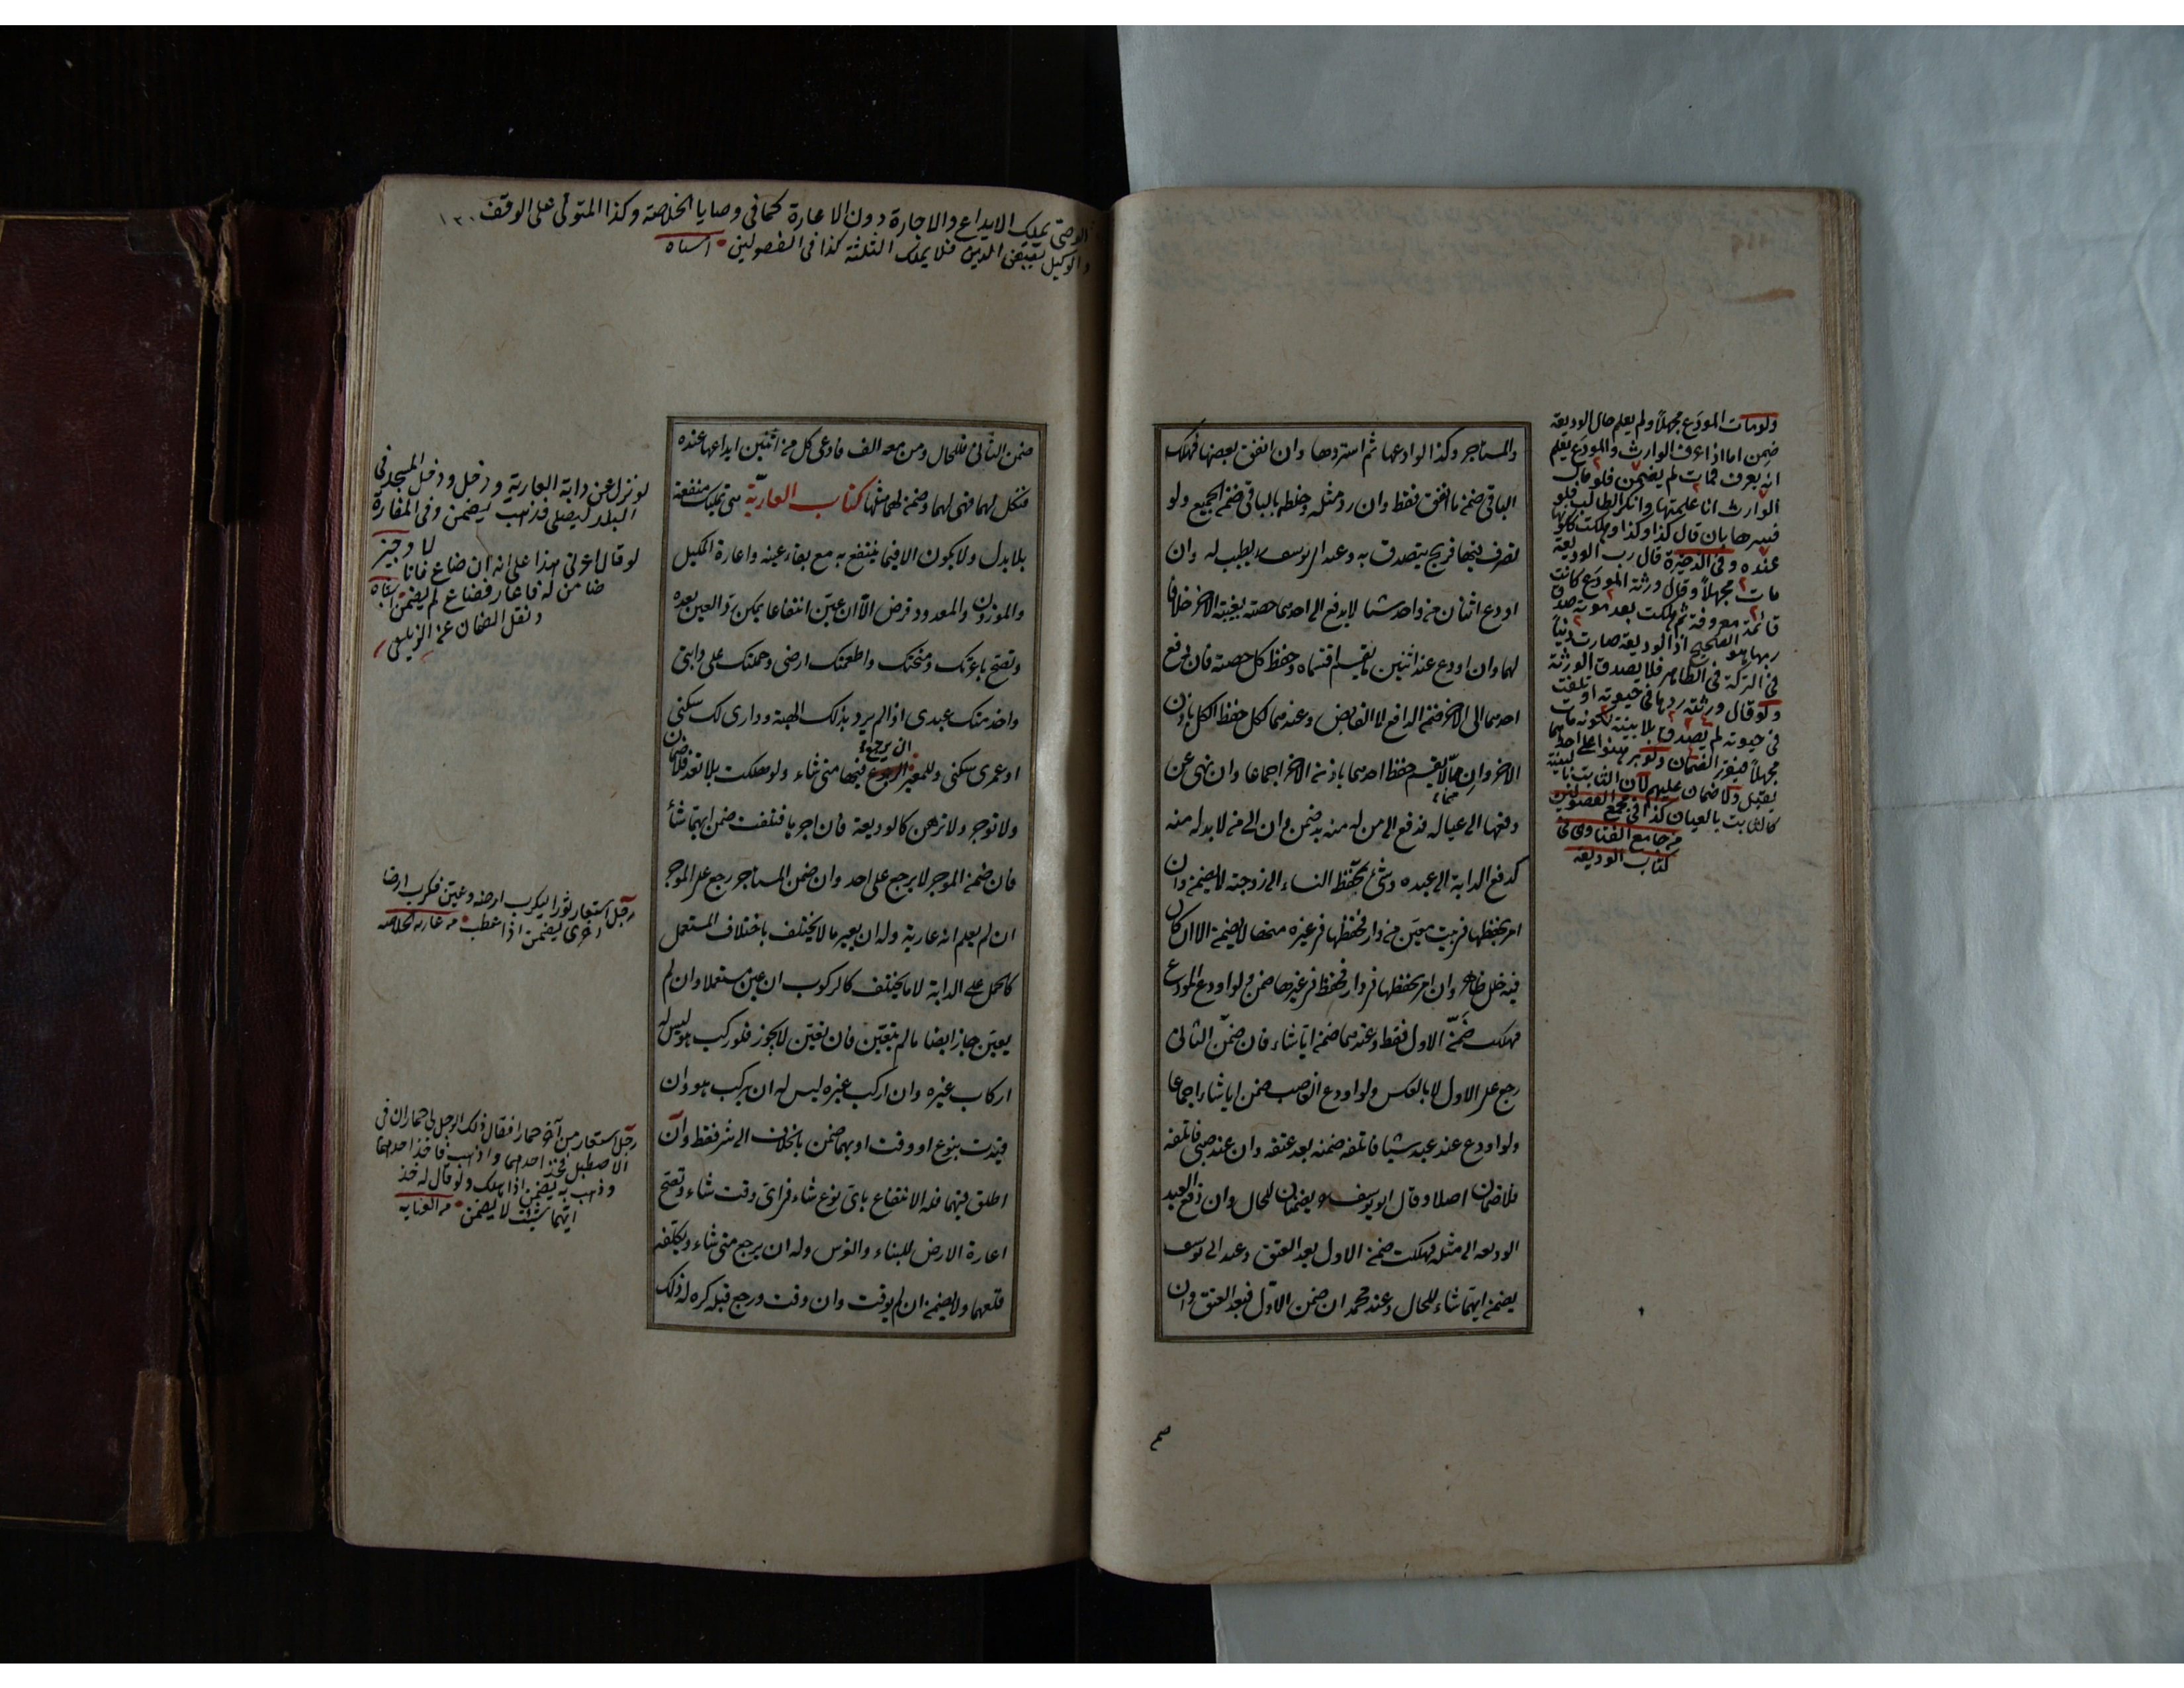 والمستاجر وكذا لو اودعها ثم استردها وان انفق بعضها فهلك
الباقي ضمن ما انفق فقط وان رد مثله وخلطه بالباقي ضمن الجميع ولو
تصرف فيها فربح يتصدق به وعند ابي يوسف يطيب له وان
اودع اثنان من واحد شيئا لا يدفع الى احدهما حصته بغيبة الاخر خلافا
لهما وان اودع عند اثنين ما يقسم اقتسماه وحفظ كل حصته فان دفع
احدهما الى الاخر ضمن الدافع لا القابض وعندهما لكل حفظ الكل باذن
الاخر وان مما لا يقسم حفظ احدهما باذن الاخر اجماعا وان نهى عن
دفعها الى عياله فدفع الى من له منه بد ضمن وان الى من لا بد له منه
كدفع الدابة الى عبده وشئ يحفظه النساء الى زوجته لا يضمن وان
امر بحفظها في بيت معين من دار فحفظها في غيره منها لا يضمن الا ان كان
فيه خلل ظاهر وان امر بحفظها في دار فحفظ في غيرها ضمن ولو اودع المودع
فهلكت ضمّن الاول فقط وعندهما ضمن ايا شاء فان ضمن الثاني
رجع على الاول لا بالعكس ولو اودع الغاصب ضمن ايا شاء اجماعا
ولو اودع عند عبد شيئا فاتلفه ضمنه بعد عتقه وان عند صبي فاتلفه
فلا ضمان اصلا وقال ابو يوسف يضمنان للحال وان دفع العبد
الوديعة الى مثله فهلكت ضمن الاول بعد العتق وعند ابي يوسف
يضمن ايهما شاء للحال وعند محمد ان ضمن الاول فبعد العتق وان
ولو مات المودع مجهلا ولم يعلم حال الوديعة
ضمن اما اذا عرف الوارث والمودع يعلم
انه يعرف فمات لم يضمن فلو قال
الوارث انا علمتها وانكر الطالب فلو
فسرها بان قال كذا وكذا وهلكت
عنده وفي الذخيرة قال رب الوديعة
مات مجهلا وقال ورثة المودع كانت
قائمة معروفة ثم هلكت بعد موته صدق
ربها هو الصحيح اذ الوديعة صارت دينا
في التركة في الظاهر فلا يصدق الورثة
ولو قال ورثته ردها في حيوته او تلفت
في حيوته لم يصدق بلا بينة لكونه مات
مجهلا فيقرر الضمان ولو برهنوا
يقبل ولا ضمان عليهم لان الثابت بالبينة
كالثابت بالعيان كذا في مجمع الفصولين
من جامع الفتاوى في
كتاب الوديعة
الوصي يملك الايداع والاجارة دون الاعارة كما في وصايا الخلاصة وكذا المتولي على الوقف
والوكيل بقبض الدين فلا يملك الثلثة كذا في الفصولين اشباه
ضمن الثاني فللحال ومن معه الف فادعى كل من اثنين ايداعها عنده
فنكل لهما فهي لهما وضمن لهما مثلها كتاب العارية هي تمليك منفعة
بلا بدل ولا يكون الا فيما ينتفع به مع بقاء عينه واعارة المكيل
والموزون والمعدود قرض الا ان عين انتفاعا يمكن رد العين بعده
وتصح باعرتك ومنحتك واطعمتك ارضي وحملتك على دابتي
واخدمتك عبدي اذا لم يرد بذلك الهبة وداري لك سكنى
او عمرى سكنى وللمعير الرجوع فيها متى شاء ولو هلكت بلا تعد فلا ضمان
ان يرجع
ولا توجر ولا ترهن كالوديعة فان اجر ها فتلفت ضمن ايهما شاء
فان ضمن الموجر لا يرجع على احد وان ضمن المستاجر رجع على الموجر
ان لم يعلم انه عارية وله ان يعير ما لا يختلف باختلاف المستعمل
كالحمل على الدابة لا ما يختلف كالركوب ان عين مستعملا وان لم
يعين جاز ايضا ما لم يتعين فان تعين لا يجوز فلو ركب هو ليس له
اركاب غيره وان اركب غيره ليس له ان يركب هو وان
قيدت بنوع او وقت او بهما ضمن بالخلاف الى شر فقط وان
اطلق فيهما فله الانتفاع باي نوع شاء في اي وقت شاء وتصح
اعارة الارض للبناء والغرس وله ان يرجع متى شاء ويكلفه
قلعهما ولا يضمن ان لم يوقت وان وقت ورجع قبله كره له ذلك
لو نزل عن دابة العارية ودخل المسجد في
البلد ليصلي فذهب يضمن وفي المفازة
لا وجيز
لو قال اعرني هذا على انه ان ضاع فانا
ضامن له فاعار فضاع لم يضمن اشباه
ونقل الضمان عن الزيلعي
رجل استعار ثورا ليكرب ارضه وعين فكرب ارضا
اخرى يضمن اذا عطب من عارية الخلاصة
رجل استعار من آخر حمارا فقال ذلك الرجل لي حماران في
الاصطبل فخذ احدهما واذهب فاخذ احدهما
وذهب به يضمن اذا هلك ولو قال له خذ
ايهما شئت لا يضمن